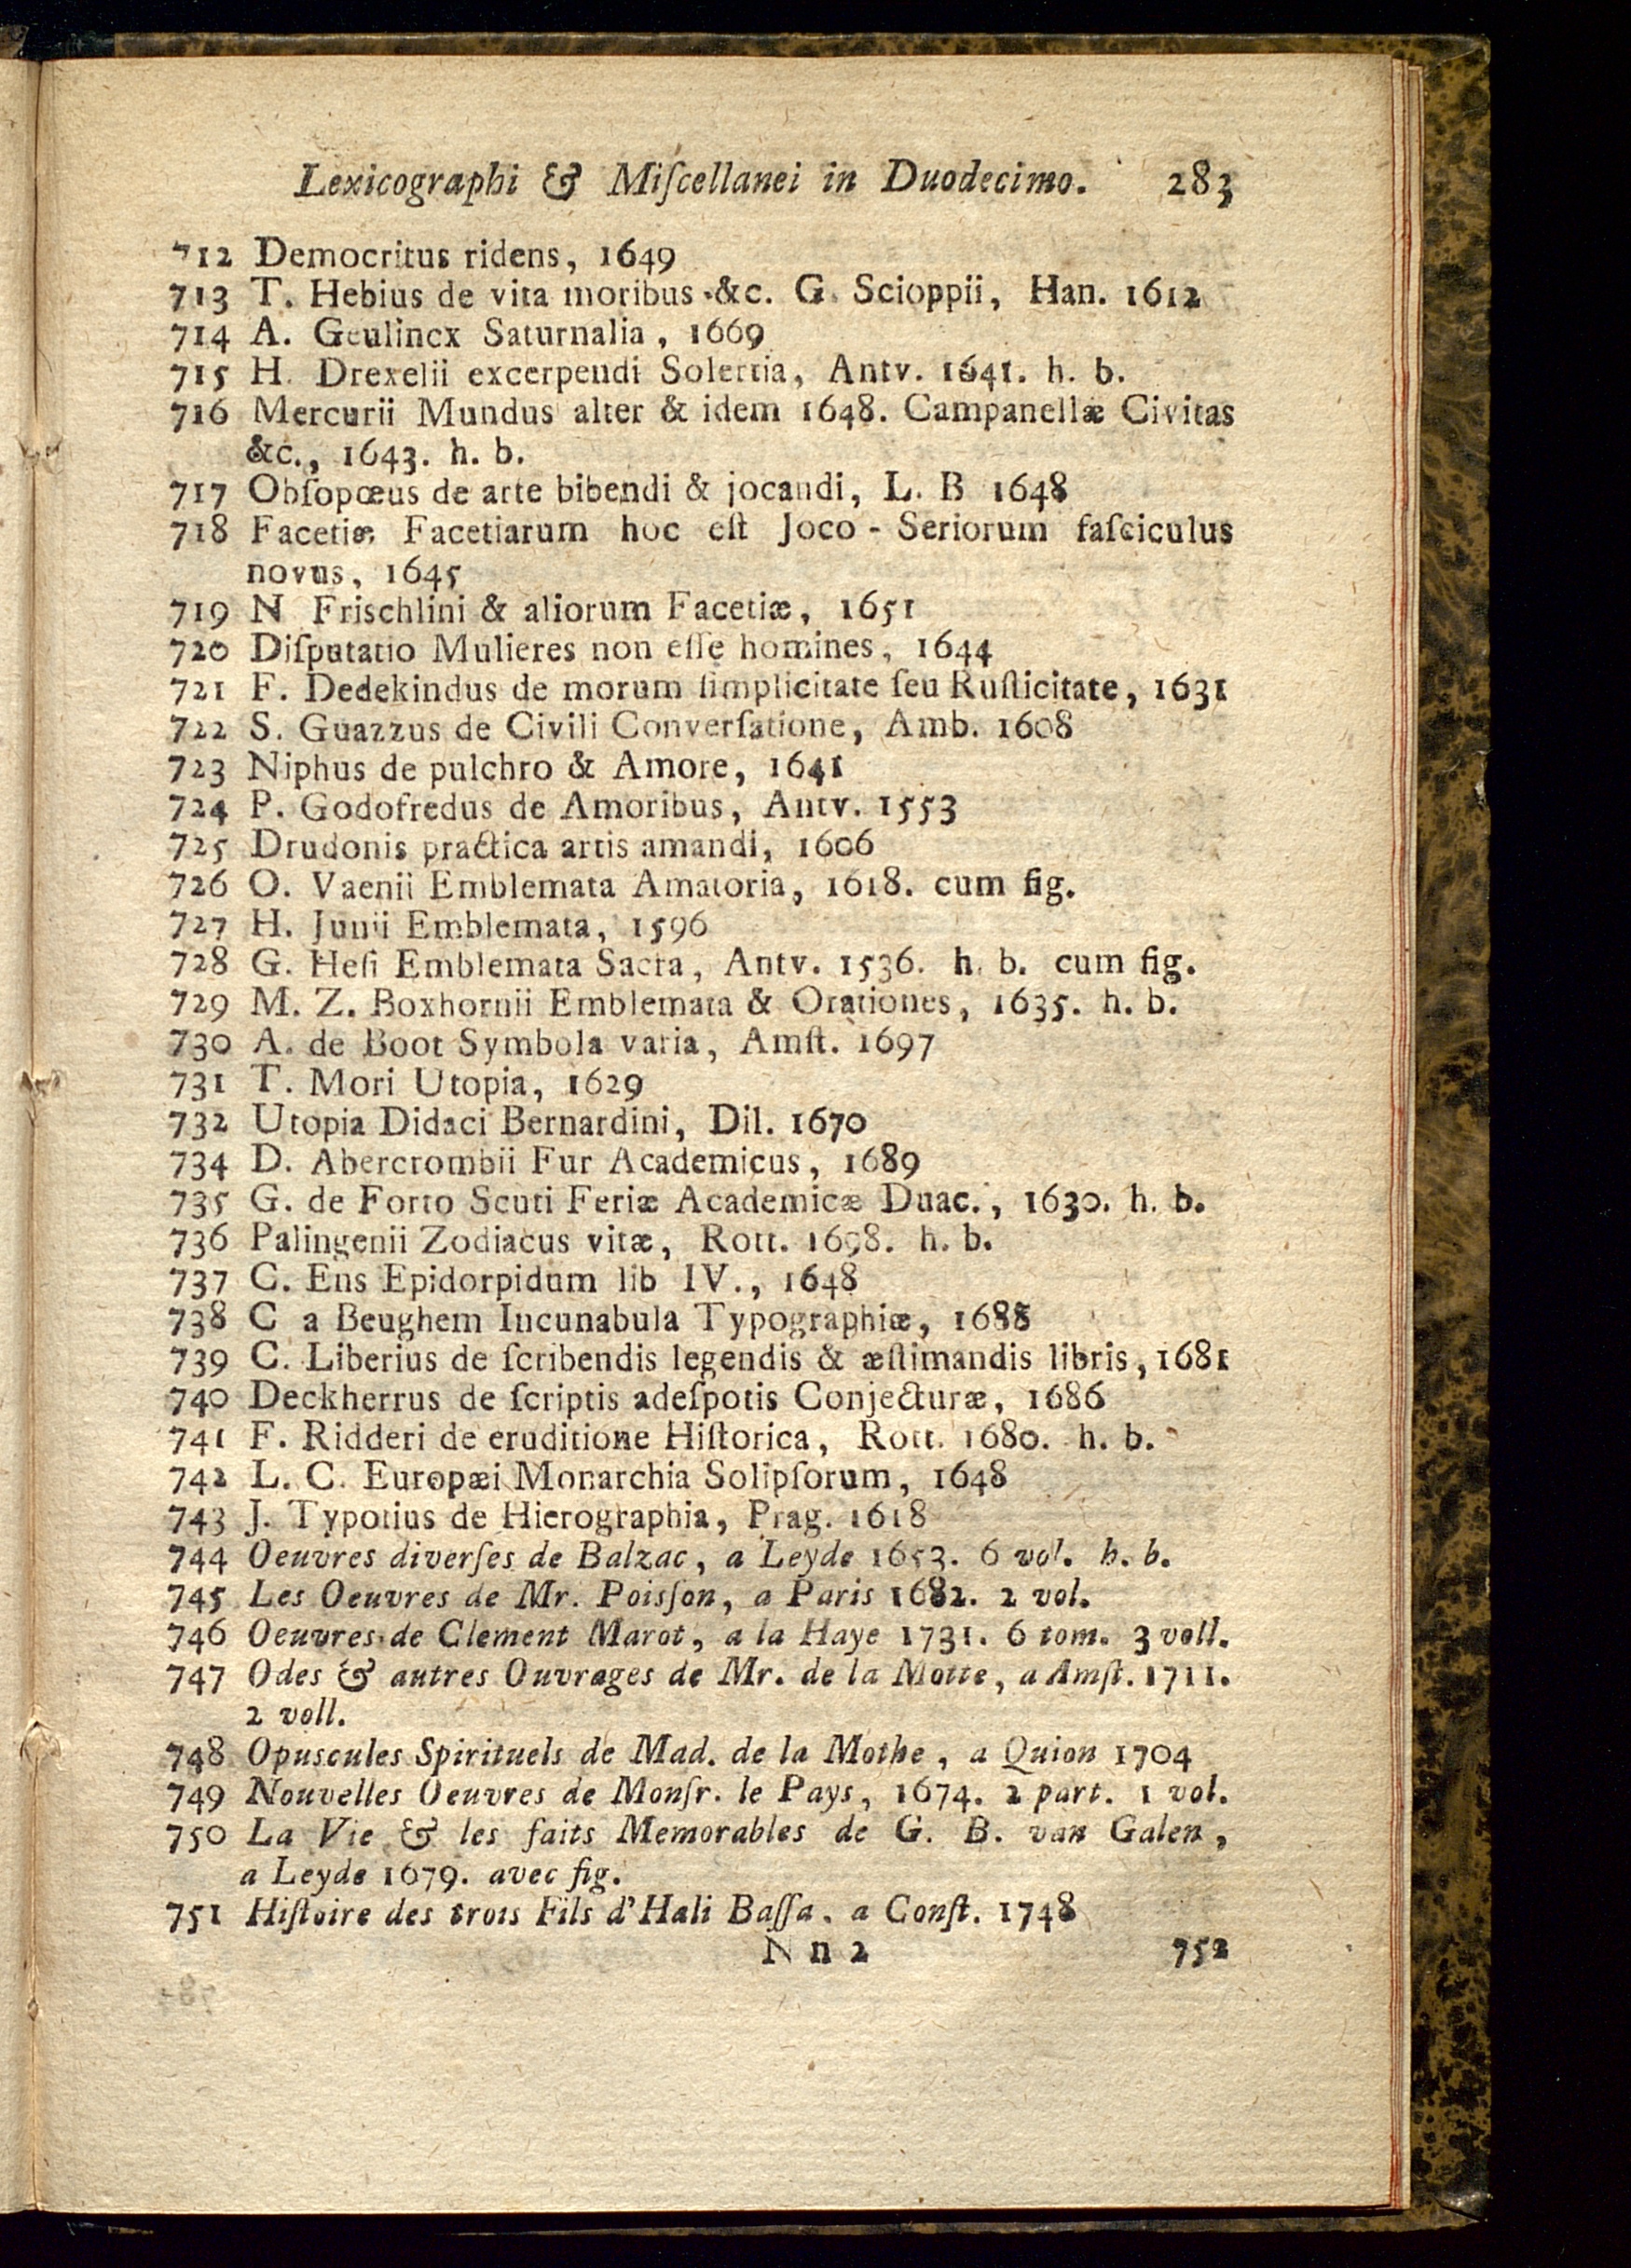 Lexicographi & Miſcellanei in Duodecimo. 283
712 Democritus ridens, 1649
713 T. Hebius de vita moribus &c. G. Scioppii, Han. 1612
714 A. Geulincx Saturnalia, 1669
715 H. Drexelii excerpendi Solertia, Antv. 1641. h. b.
716 Mercurii Mundus alter & idem 1648. Campanellæ Civitas
&c., 1643. h. b.
717 Obſopœus de arte bibendi & jocandi, L. B 1648
718 Facetiæ Facetiarum hoc eſt Joco - Seriorum faſciculus
novus, 1645
719 N Frischlini & aliorum Facetiæ, 1651
720 Diſputatio Mulieres non eſſe homines, 1644
721 F. Dedekindus de morum ſimplicitate ſeu Ruſticitate, 1631
722 S. Guazzus de Civili Converſatione, Amb. 1608
723 Niphus de pulchro & Amore, 1641
724 P. Godofredus de Amoribus, Antv. 1553
725 Drudonis practica artis amandi, 1606
726 O. Vaenii Emblemata Amatoria, 1618. cum fig.
727 H. Junii Emblemata, 1596
728 G. Heſi Emblemata Sacra, Antv. 1536. h. b. cum fig.
729 M. Z. Boxhornii Emblemata & Orationes, 1635. h. b.
730 A. de Boot Symbola varia, Amſt. 1697
731 T. Mori Utopia, 1629
732 Utopia Didaci Bernardini, Dil. 1670
734 D. Abercrombii Fur Academicus, 1689
735 G. de Forto Scuti Feriæ Academicæ Duac., 1630. h. b.
736 Palingenii Zodiacus vitæ, Rott. 1698. h. b.
737 C. Ens Epidorpidum lib IV., 1648
738 C a Beughem Incunabula Typographiæ, 1688
739 C. Liberius de ſcribendis legendis & æſtimandis libris, 1681
740 Deckherrus de ſcriptis adeſpotis Conjecturæ, 1686
741 F. Ridderi de eruditione Hiſtorica, Rott. 1680. h. b.
742 L. C. Europæi Monarchia Solipſorum, 1648
743 J. Typotius de Hierographia, Prag. 1618
744 Oeuvres diverſes de Balzac, a Leyde 1653. 6 vol. h. b.
745 Les Oeuvres de Mr. Poisſon, a Paris 1682. 2 vol.
746 Oeuvres de Clement Marot, a la Haye 1731. 6 tom. 3 voll.
747 Odes & autres Ouvrages de Mr. de la Motte, a Amſt. 1711.
2 voll.
748 Opuscules Spirituels de Mad. de la Mothe, a Quion 1704
749 Nouvelles Oeuvres de Monſr. le Pays, 1674. 2 part. 1 vol.
750 La Vie & les faits Memorables de G. B. van Galen,
a Leyde 1679. avec fig.
751 Hiſtoire des trois Fils d'Hali Baſſa, a Conſt. 1748
N n 2 752